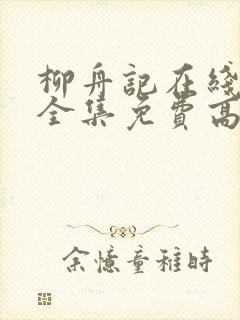 柳舟記在綫
全集免費高
余憶童稚時